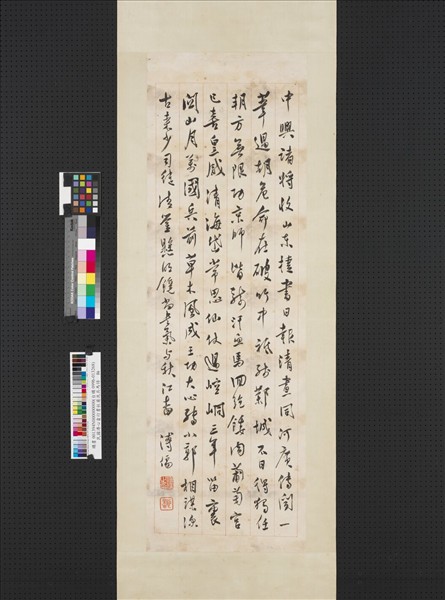 中興諸將收山東捷書日報清晝同河廣傳聞一
葦過胡危命在破竹中祗殘鄴城不日得獨任
朔方無限功京師皆騎汗血馬回紇餧肉葡萄宮
已喜皇威清海岱常思仙仗過崆峒三年笛裏
關山月萬國兵前草木風成王功大心轉小郭相謀深
古來少司徒清鑒懸明鏡尚書氣與秋江杳 溥